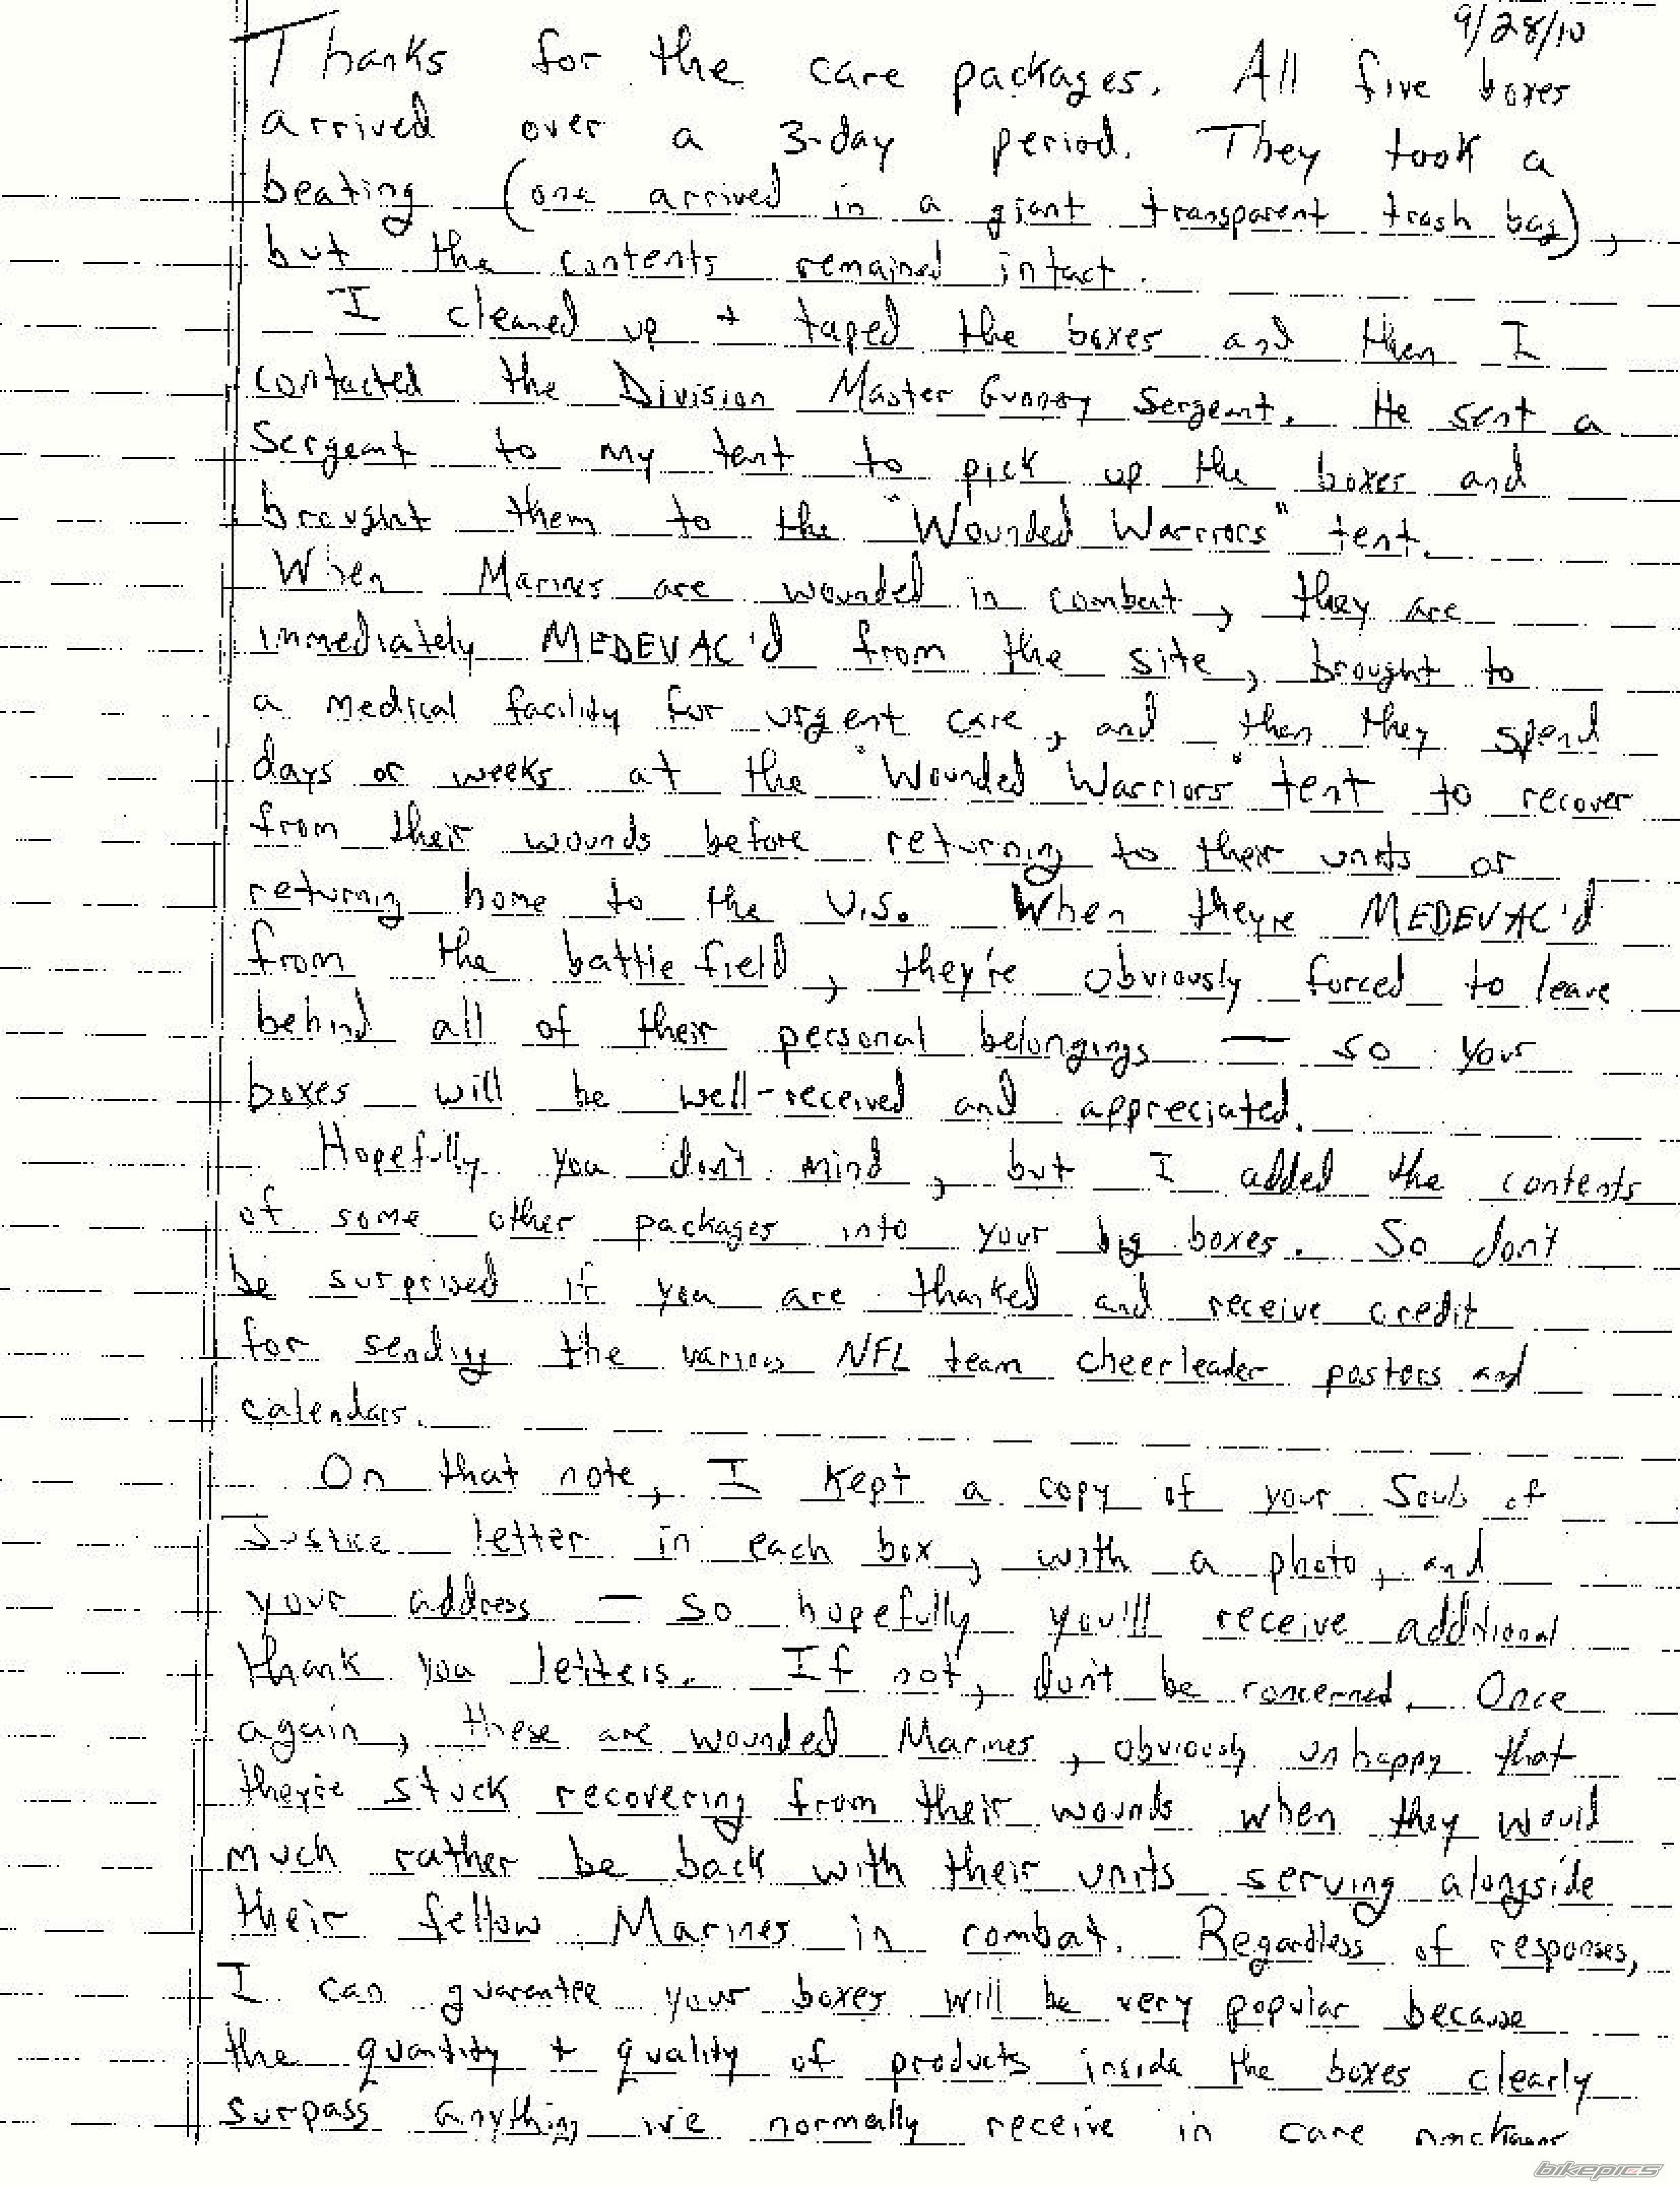 9/28/10
Thanks for the care packages. All five boxes
arrived over a 3-day period. They took a
beating (one arrived in a giant transparent trash bag),
but the contents remained intact.
I cleaned up + taped the boxes and then I
contacted the Division Master Gunnery Sergeant. He sent a
Sergeant to my tent to pick up the boxes and
brought them to the "Wounded Warriors" tent.
When Marines are wounded in combat, they are
immediately MEDEVAC'd from the site, brought to
a medical facility for urgent care, and then they spend
days or weeks at the "Wounded Warriors" tent to recover
from their wounds before returning to their units or
returning home to the U.S. When they're MEDEVAC'd
from the battlefield, they're obviously forced to leave
behind all of their personal belongings — so your
boxes will be well-received and appreciated.
Hopefully you don't mind, but I added the contents
of some other packages into your big boxes. So don't
be surprised if you are thanked and receive credit
for sending the various NFL team cheerleader posters and
calendars.
On that note, I kept a copy of your Souls of
Justice letter in each box, with a photo, and
your address — so hopefully you'll receive additional
thank you letters. If not, don't be concerned. Once
again, these are wounded Marines, obviously unhappy that
they're stuck recovering from their wounds when they would
much rather be back with their units serving alongside
their fellow Marines in combat. Regardless of responses,
I can guarantee your boxes will be very popular because
the quantity + quality of products inside the boxes clearly
surpass anything we normally receive in care packages
bikepics